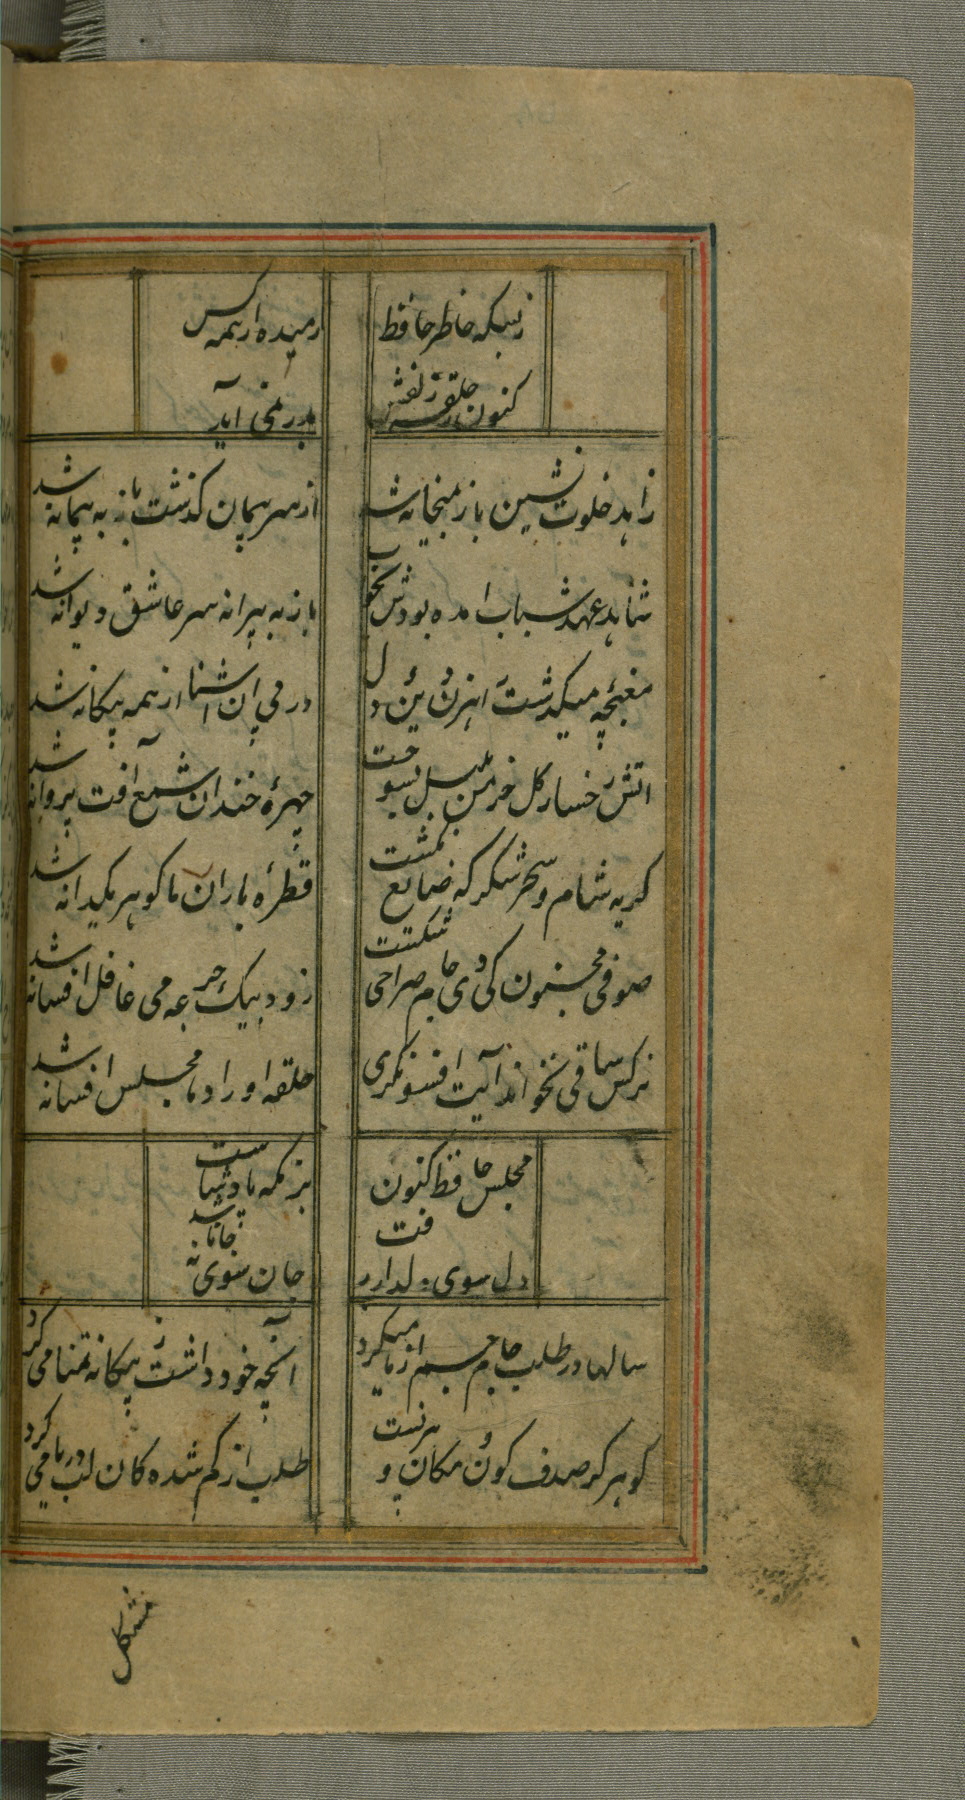 زبسکه خاطر حافظ رمیده از همه کس
کنون حلقه زلفش بدر نمی آید
زاهد خلوت نشین باز بمیخانه شد از سر پیمان گذشت باز به پیمانه شد
شاهد عهد شباب امده بودش بخواب باز به پیرانه سر عاشق و دیوانه شد
مغبچه میگذشت راهزن و دین و دل در پی ان اشنا از همه بیگانه شد
اتش رخسار گل خرمن بلبل بسوخت چهرهٔ خندان شمع آفت پروانه شد
گریه شام و سحر شکر که ضایع نگشت قطرهٔ باران ما گوهر یکدانه شد
صوفی مجنون که دی جام صراحی شکست زود بیک جرعه می غافل افسانه شد
نرگس ساقی نخواند آیت افسونگری حلقه اوراد ما مجلس افسانه شد
مجلس حافظ کنون بزمگه پادشاست
دل سوی دلدار رفت جان سوی جانانه شد
سالها در طلب جام جم از ما میکرد انچه خود داشت ز بیگانه تمنا می کرد
گوهر کز صدف کون و مکان بیرنست طلب از گم شده کان لب دریا می کرد
مشکل